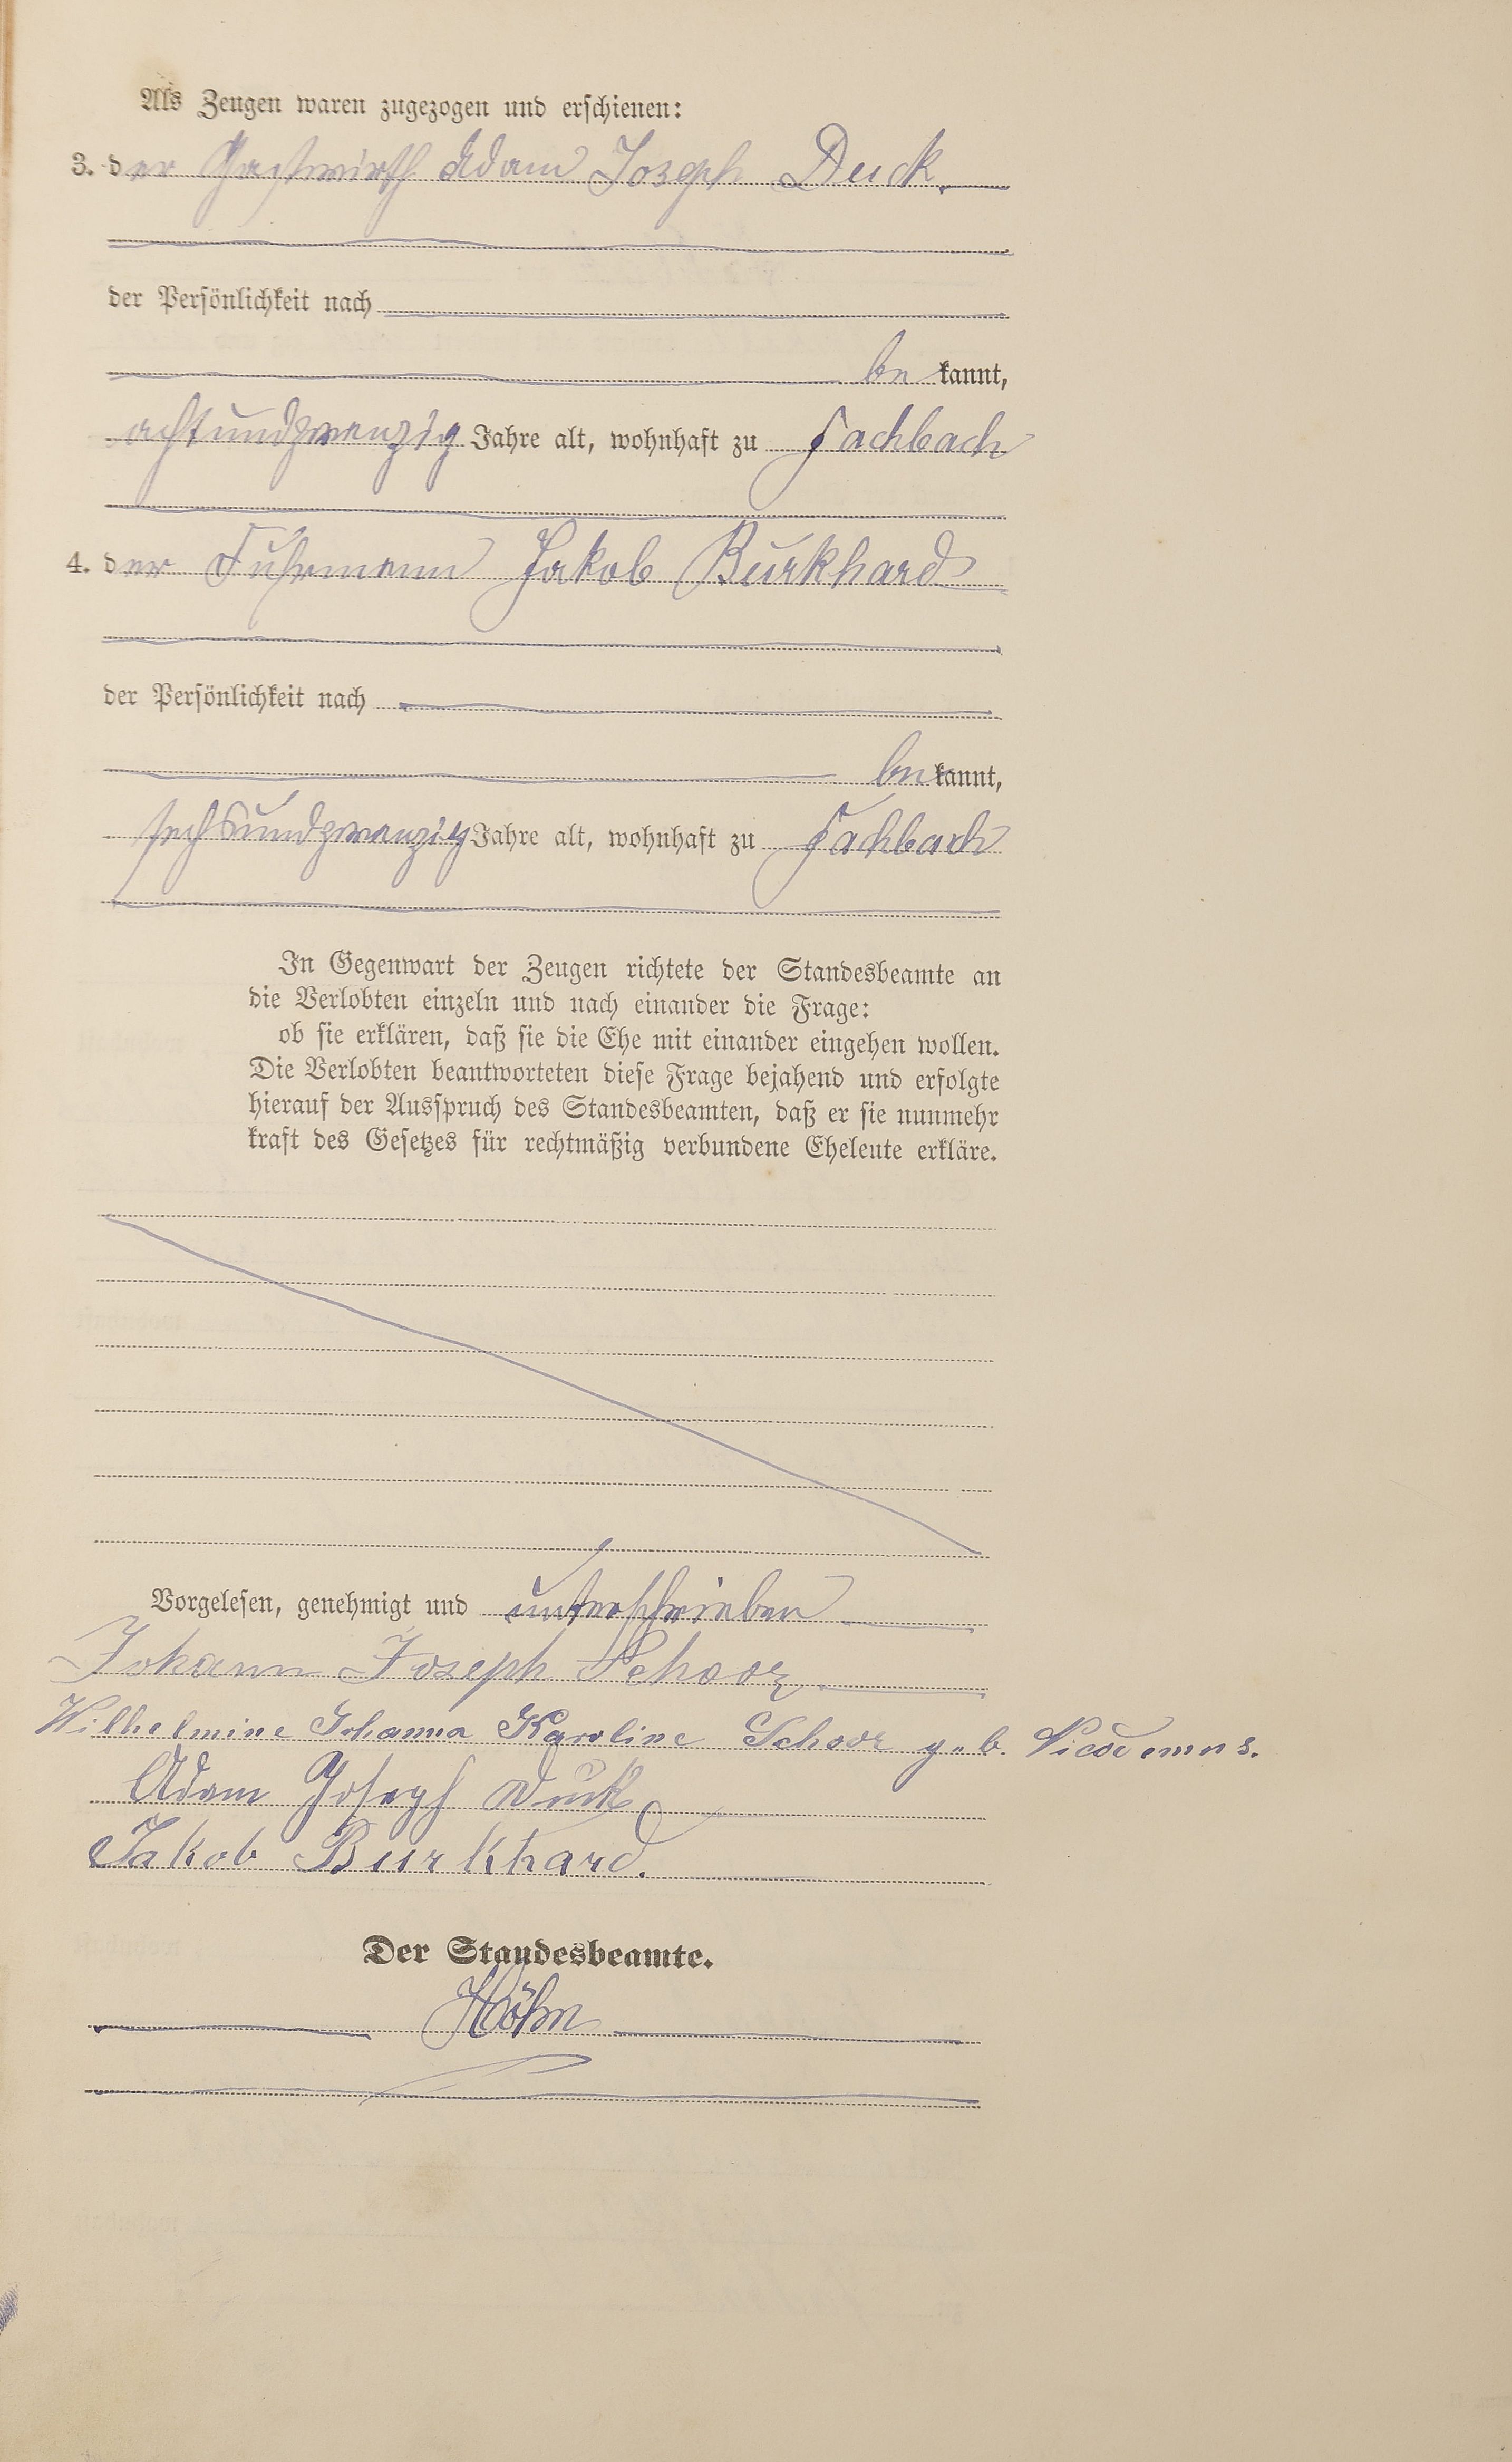 Als Zeugen waren zugezogen und erschienen:
3. der Gastwirth Adam Joseph Duck.
der Persönlichkeit nach
be kannt,
achtundzwanzig Jahre alt, wohnhaft zu Fachbach
4. der Fuhrmann Jakob Burkhard
der Persönlichkeit nach
be kannt,
sechsundzwanzig Jahre alt, wohnhaft zu Fachbach
In Gegenwart der Zeugen richtete der Standesbeamte an
die Verlobten einzeln und nach einander die Frage:
ob sie erklären, daß sie die Ehe mit einander eingehen wollen.
Die Verlobten beantworteten diese Frage bejahend und erfolgte
hierauf der Ausspruch des Standesbeamten, daß er sie nunmehr
kraft des Gesetzes für rechtmäßig verbundene Eheleute erkläre.
Vorgelesen, genehmigt und unterschrieben
Johann Joseph Schoor
Wilhelmine Johanna Karoline Schoor geb. Nicodemus.
Adam Joseph Duck
Jakob Burkhard.
Der Standesbeamte.
Höhn